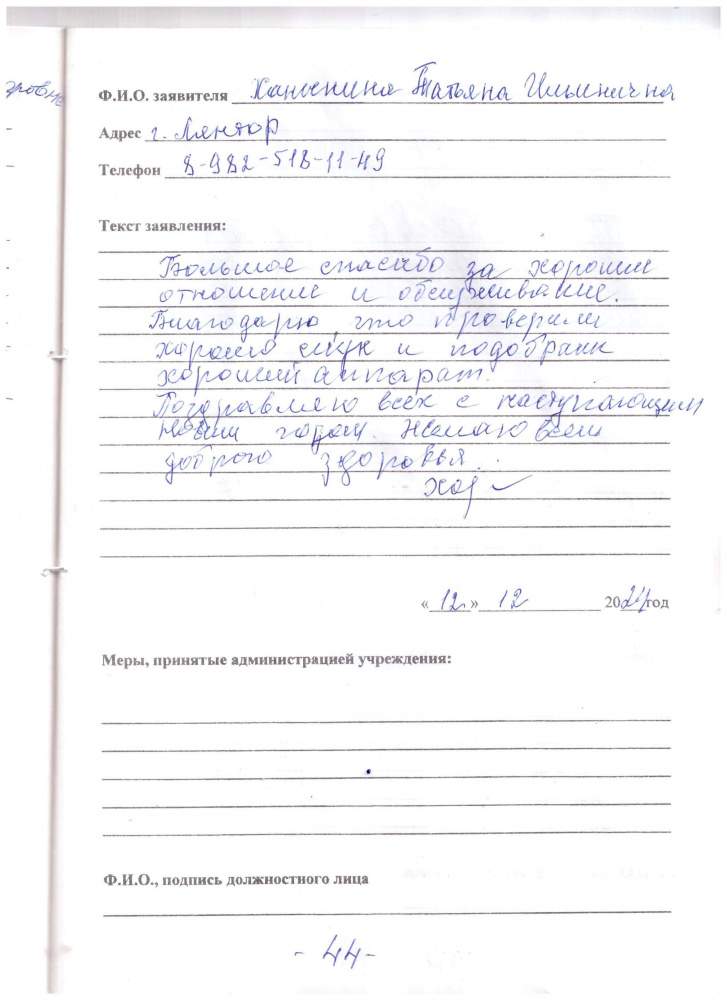 Ф.И.О. заявителя Татьяна Ильинична
Адрес г. Лянтор
Телефон 8-982-518-11-49
Текст заявления:
Большое спасибо за хорошее
отношение и обслуживание.
Благодарю, что проверили
хорошо слух и подобрали
хороший аппарат.
Поздравляю всех с наступающим
новым годом. Желаю всем
доброго здоровья.
«12» 12 2024 год
Меры, принятые администрацией учреждения:
Ф.И.О., подпись должностного лица
- 44 -